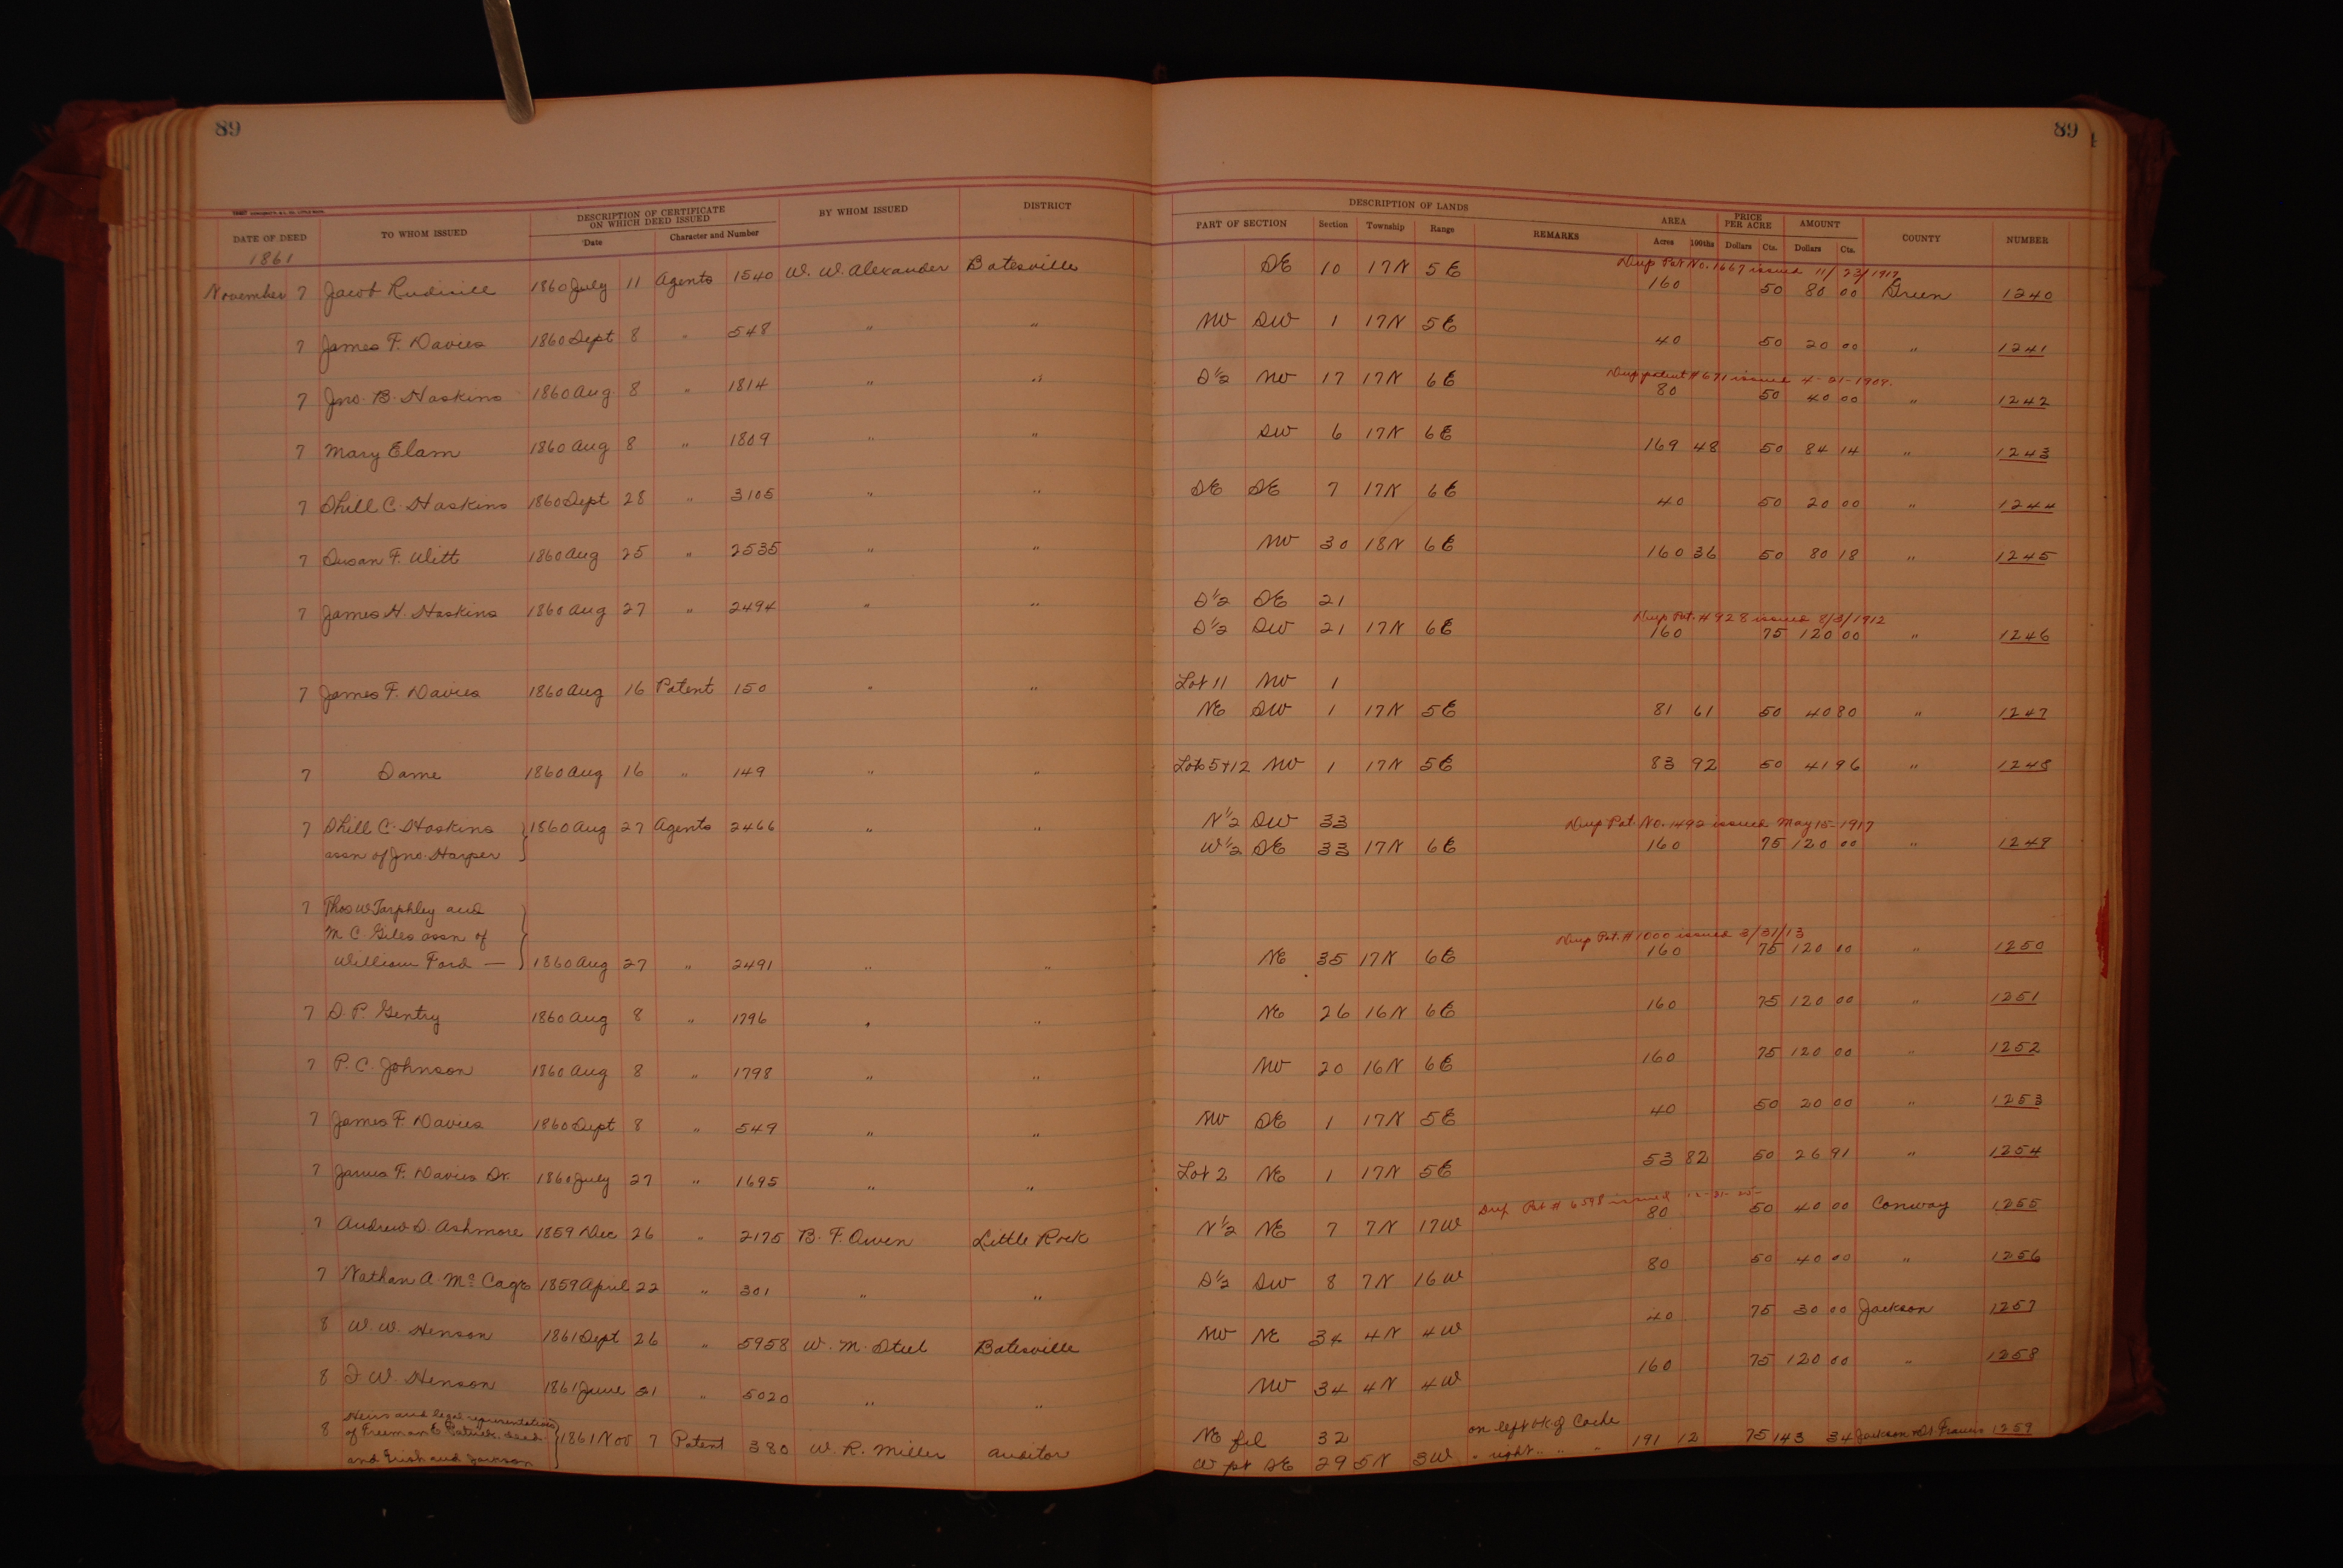 89
89
DESCRIPTION OF CERTIFICATE ON WHICH DEED ISSUED
DESCRIPTION OF LANDS
DATE OF DEED TO WHOM ISSUED Date Character and Number BY WHOM ISSUED DISTRICT PART OF SECTION Section Township Range REMARKS AREA Acres 100ths PRICE PER ACRE Dollars Cts. AMOUNT Dollars Cts. COUNTY NUMBER
1861
Dup Pat No. 1667 issued 11/23/1917
November 7 Jacob Rudisill 1860 July 11 Agents 1540 W. W. Alexander Batesville SE 10 17N 5E 160 50 80 00 Green 1240
7 James F. Davies 1860 Sept 8 " 548 " " NW SW 1 17N 5E 40 50 20 00 " 1241
Dup patent #671 issued 4-21-1909.
7 Jno. B. Haskins 1860 Aug 8 " 1814 " " S½ NW 17 17N 6E 80 50 40 00 " 1242
7 Mary Elam 1860 Aug 8 " 1809 " " SW 6 17N 6E 169 48 50 84 14 " 1243
7 Shill C. Haskins 1860 Sept 28 " 3105 " " SE SE 7 17N 6E 40 50 20 00 " 1244
7 Susan F. Witt 1860 Aug 25 " 2535 " " NW 30 18N 6E 160 36 50 80 18 " 1245
7 James H. Haskins 1860 Aug 27 " 2494 " " S½ SE 21
Dup Pat. #928 issued 8/3/1912
S½ SW 21 17N 6E 160 75 120 00 " 1246
7 James F. Davies 1860 Aug 16 Patent 150 " " Lot 11 NW 1
NE SW 1 17N 5E 81 61 50 40 80 " 1247
7 Same 1860 Aug 16 " 149 " " Lots 5+12 NW 1 17N 5E 83 92 50 41 96 " 1248
7 Shill C. Haskins 1860 Aug 27 Agents 2466 " " N½ SW 33
Dup Pat. No. 1492 issued May 15-1917
assn of Jno. Harper W½ SE 33 17N 6E 160 75 120 00 " 1249
7 Thos W Tarphley and
M C Giles assn of
Dup Pat. #1000 issued 3/31/13
William Ford — 1860 Aug 27 " 2491 " " NE 35 17N 6E 160 75 120 00 " 1250
7 D. P. Gentry 1860 Aug 8 " 1796 " " NE 26 16N 6E 160 75 120 00 " 1251
7 P. C. Johnson 1860 Aug 8 " 1798 " " NW 20 16N 6E 160 75 120 00 " 1252
7 James F. Davies 1860 Sept 8 " 549 " " NW SE 1 17N 5E 40 50 20 00 " 1253
7 James F. Davies Sr. 1860 July 27 " 1695 " " Lot 2 NE 1 17N 5E 53 82 50 26 91 " 1254
Dup Pat # issued
7 Andrew S. Ashmore 1859 Dec 26 " 2175 B. F. Owen Little Rock N½ NE 7 7N 17W 80 50 40 00 Conway 1255
7 Nathan A. McCage 1859 April 22 " 301 " " S½ SW 8 7N 16W 80 50 40 00 " 1256
8 W. W. Henson 1861 Sept 26 " 5958 W. M. Steel Batesville NW NE 34 4N 4W 40 75 30 00 Jackson 1257
8 J W. Henson 1861 June 21 " 5020 " " NW 34 4N 4W 160 75 120 00 " 1258
Heirs and legal representatives
8 of Freeman 1861 Nov 7 Patent 380 W. R. Miller Auditor NE fcl 32 on left bk of Cache
and Jackson W pt SE 29 5N 3W " right " " " 191 12 75 143 34 Jackson & St Francis 1259